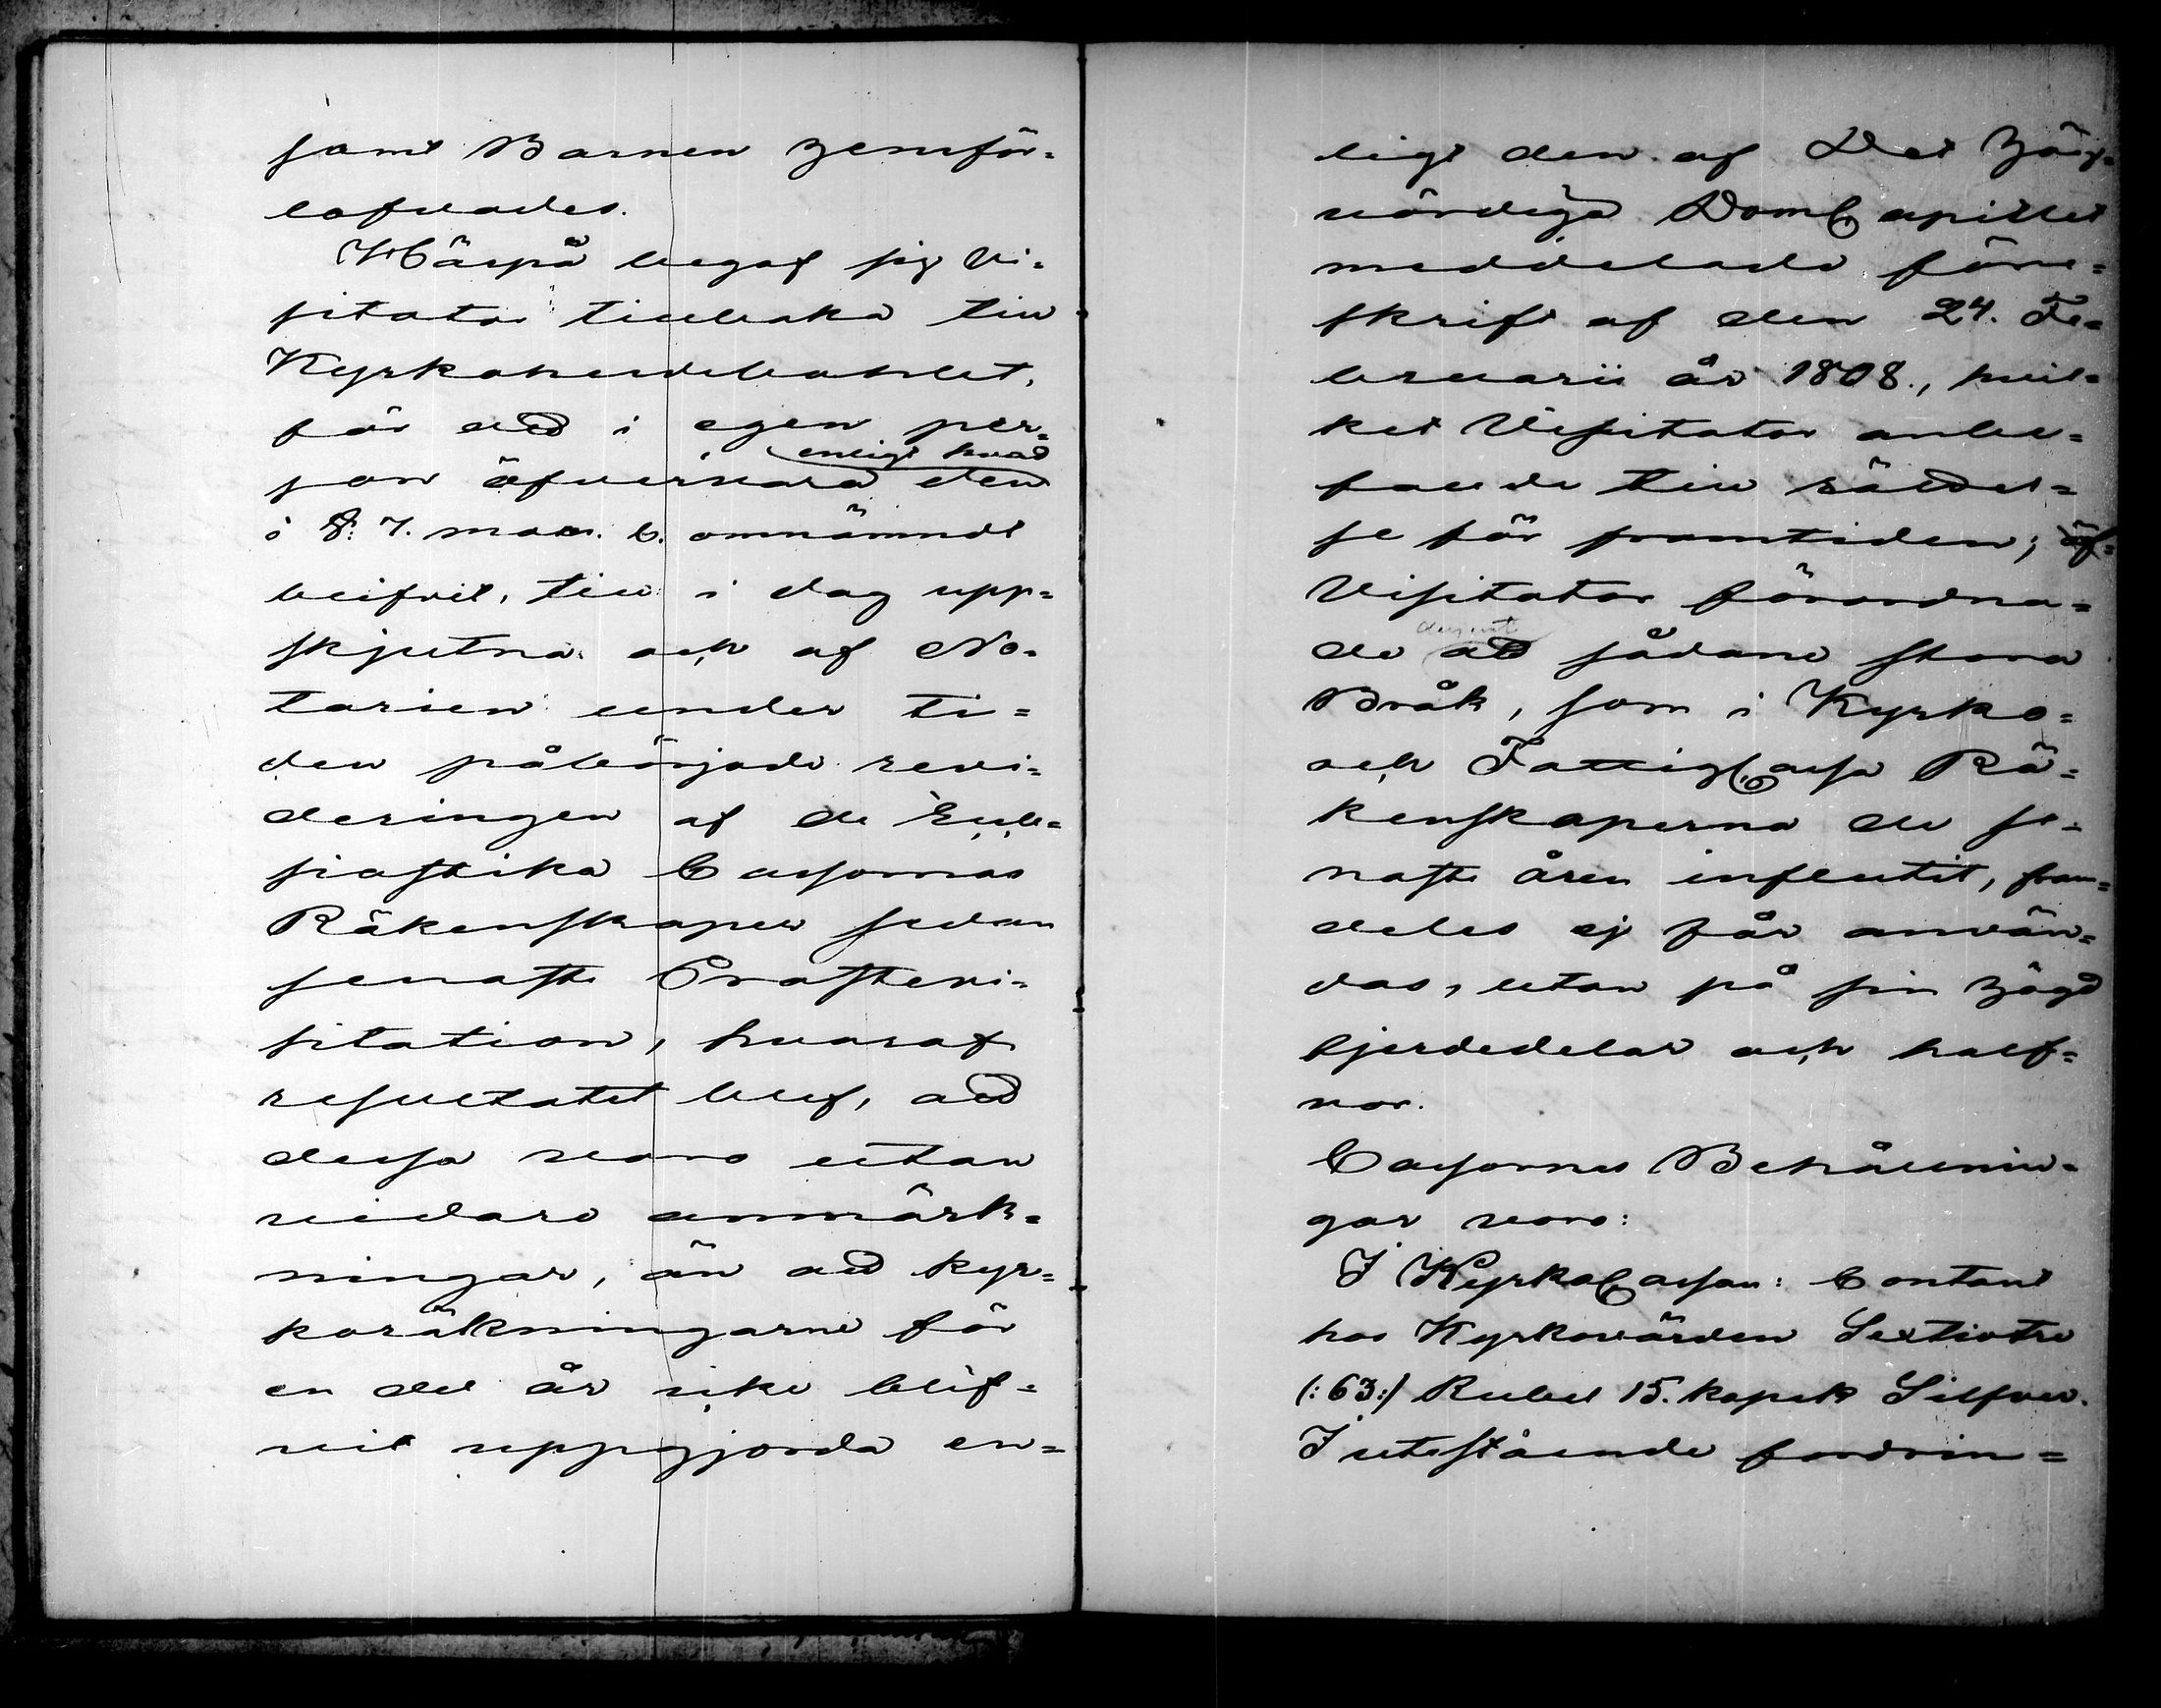 samt Barnen hemför=
lofvades.
Härpå begaf sig Vi=
sitator tillbaka till
Kyrkoherdebohlet,
för att i egen per=
enligt hvad
son öfvervara den
i §. 7. mom. C. omnämndt
blifvit, till i dag upp=
skjutna och af No=
tarien under ti=
den påbörjade revi=
deringen af de Eccle=
siastika Cassornas
Räkenskaper sedan
senaste Prostevi=
sitation, hvaraf
resultatet blef, att
dessa voro utan
vidare anmärk=
ningar, än att kyr=
koräkningarne för
en del år icke blif=
vit uppgjorda en=
ligt den af Det Hög=
värdiga DomCapitlet
meddelade före=
skrift af den 24. Fe=
bruarii år 1808., hvil=
ket Visitator anbe=
fallde till rättel=
se för framtiden; öf=
Visitator förordna=
de att sådane stora
Bråk, som i Kyrko=
och FattigCassa Rä=
kenskaperna de se=
naste åren influtit, fram=
deles ej får använ=
das, utan på sin högd
fjerdedelar och half=
vor.
Cassornes Behållnin=
gar voro:
I KyrkoCassan: Contant
hos Kyrkovärden Sextiotre
(:63:) Rubel 15. kopek Silfver.
I utestående fordrin=